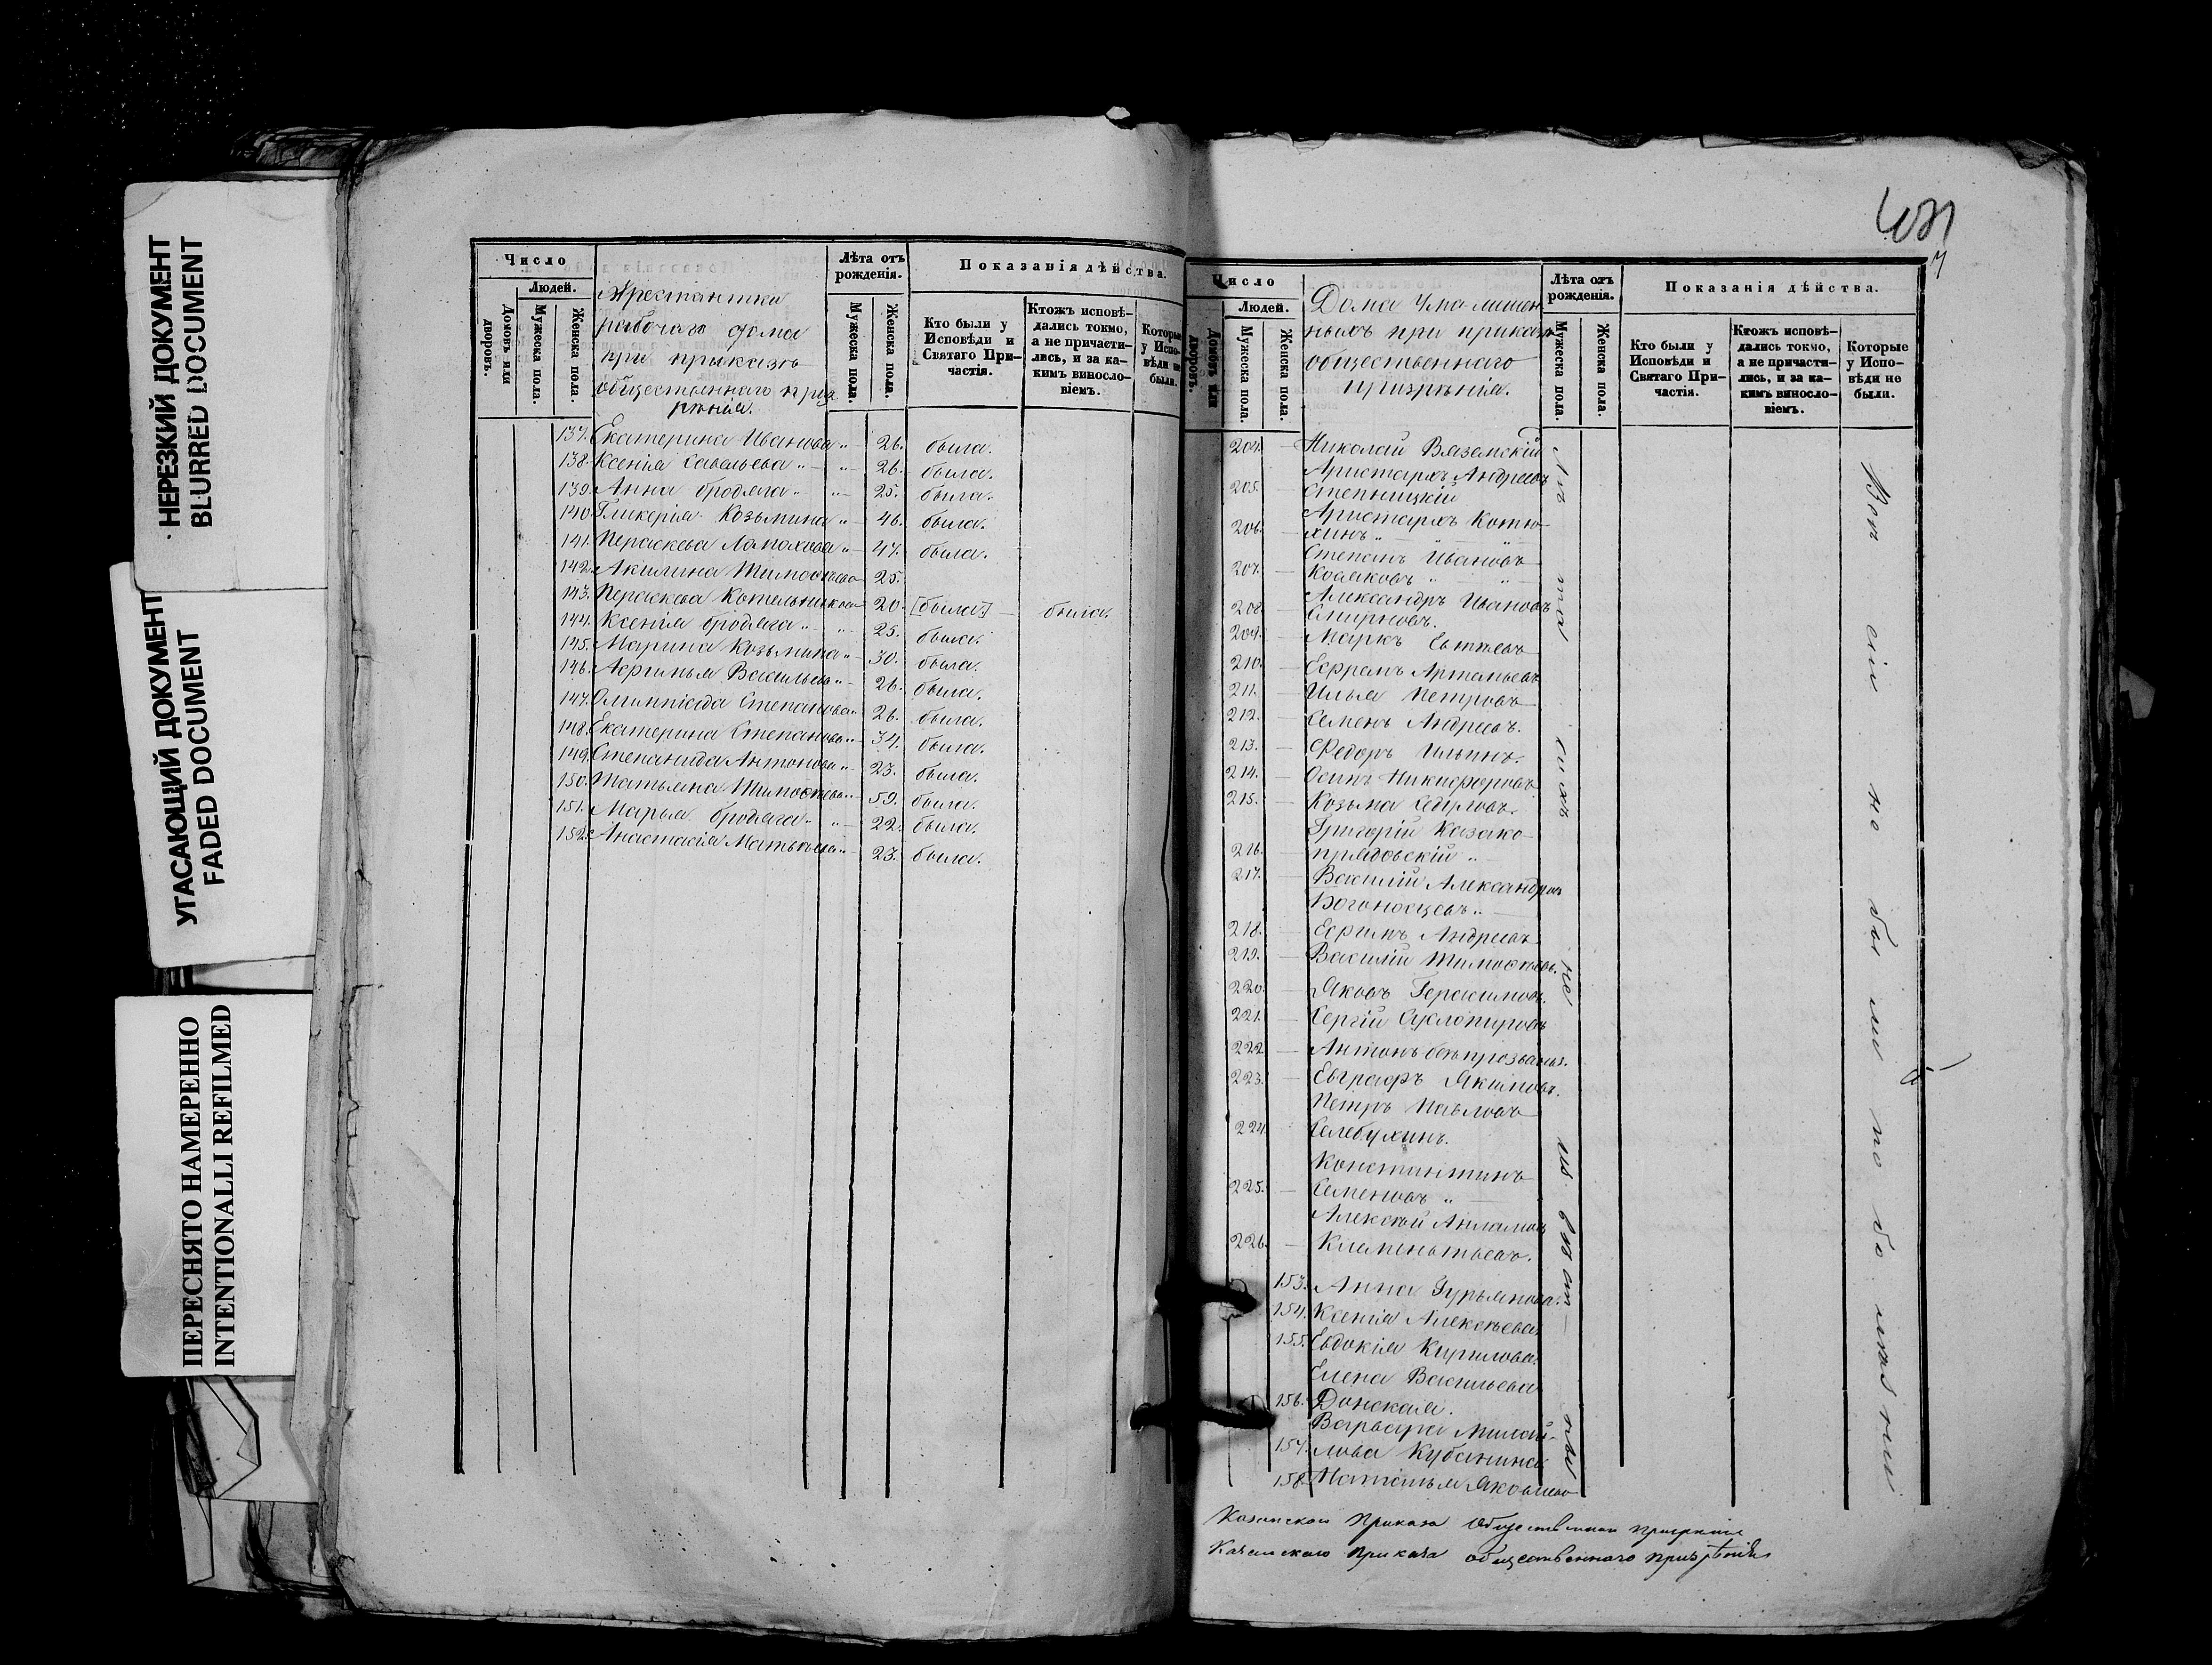 НЕРЕЗКИЙ ДОКУМЕНТ
BLURRED DOCUMENT
УГАСАЮЩИЙ ДОКУМЕНТ
FADED DOCUMENT
ПЕРЕСНЯТО НАМЕРЕННО
INTENTIONALLI REFILMED
Число
Людей.
Домовъ или дворовъ.
Мужеска пола.
Женска пола.
Арестантки
рабочаго дома
при приказѣ
общественнаго приз
рѣнія.
Лѣта отъ рожденія.
Мужеска пола.
Женска пола.
Показанія дѣйства.
Кто были у Исповѣди и Святаго Причастія.
Ктожъ исповѣдались токмо, а не причастились, и за какимъ винословіемъ.
Которые у Исповѣди не были.
137. Екатерина Иванова „ — 26. была.
138. Ксенія Савельева „ — „ — 26. была.
139. Анна бродяга „ „ — 25. была.
140. Гликерія Козьмина „ — 46. была.
141. Параскева Лапахова „ — 47. была.
142. Акилина Тимофѣева 25.
143. Параскева Котельникова 20. [была] — была.
144. Ксенія бродяга „ — „ — 25. была.
145. Марина Козьмина „ — 30. была.
146. Афимья Васильева „ — 26. была.
147. Олимпіада Степанова „ 26. была.
148. Екатерина Степанова „ — 34. была.
149. Степанида Антонова „ — 23. была.
150. Татьяна Тимофѣева „ — 59. была.
151. Марья бродяга „ „ — 22. была.
152. Анастасія Матвѣева „ — 23. была.
Число
Людей.
Домовъ или дворовъ.
Мужеска пола.
Женска пола.
Дома Ума лишен
ныхъ при приказѣ
общественнаго
призрѣнія.
Лѣта отъ рожденія.
Мужеска пола.
Женска пола.
Показанія дѣйства.
Кто были у Исповѣди и Святаго Причастія.
Ктожъ исповѣдались токмо, а не причастились, и за какимъ винословіемъ.
Которые у Исповѣди не были.
204. — Николай Вяземскій
Аристархъ Андреевъ
205. — Степницкій
Аристархъ Котю-
206. — хинъ „ — „ — „
Степанъ Ивановъ
207. — „ — „
Александръ Ивановъ
208. — Смирновъ.
209. — Маркъ
210. — Ефремъ Артемьевъ
211. — Илья Петровъ
212. — Семенъ Андреевъ.
213. — Федоръ Ильинъ.
214. — Осипъ Никифоровъ
215. — Козьма
Григорій Казако-
216. — прядовскій „
217. — Василій Александровъ
Богоносцевъ „ —
218. — Ефимъ Андреевъ
219. — Василій Тимофѣевъ.
220. — Яковъ Герасимовъ.
221. — Сергій
222. — Антонъ безъ прозванія.
223. — Евграфъ Якимовъ.
Петръ Павловъ
224. Селебухинъ.
Константинъ
225. — Семеновъ „ —
Алексѣй
226. — Клементьевъ.
153. Анна Гурьянова.
154. Ксенія Алексѣева.
155. Евдокія Кирилова.
Елена Васильева
156. Донская.
Варвара Михай-
157. лова Кубанина
158. Наталья Яковлева
Лѣта сихъ не извѣстны
Вси сіи не были по болѣзни
Казанскаго Приказа Общественнаго Призрѣнія
Казанскаго Приказа общественнаго призрѣнія